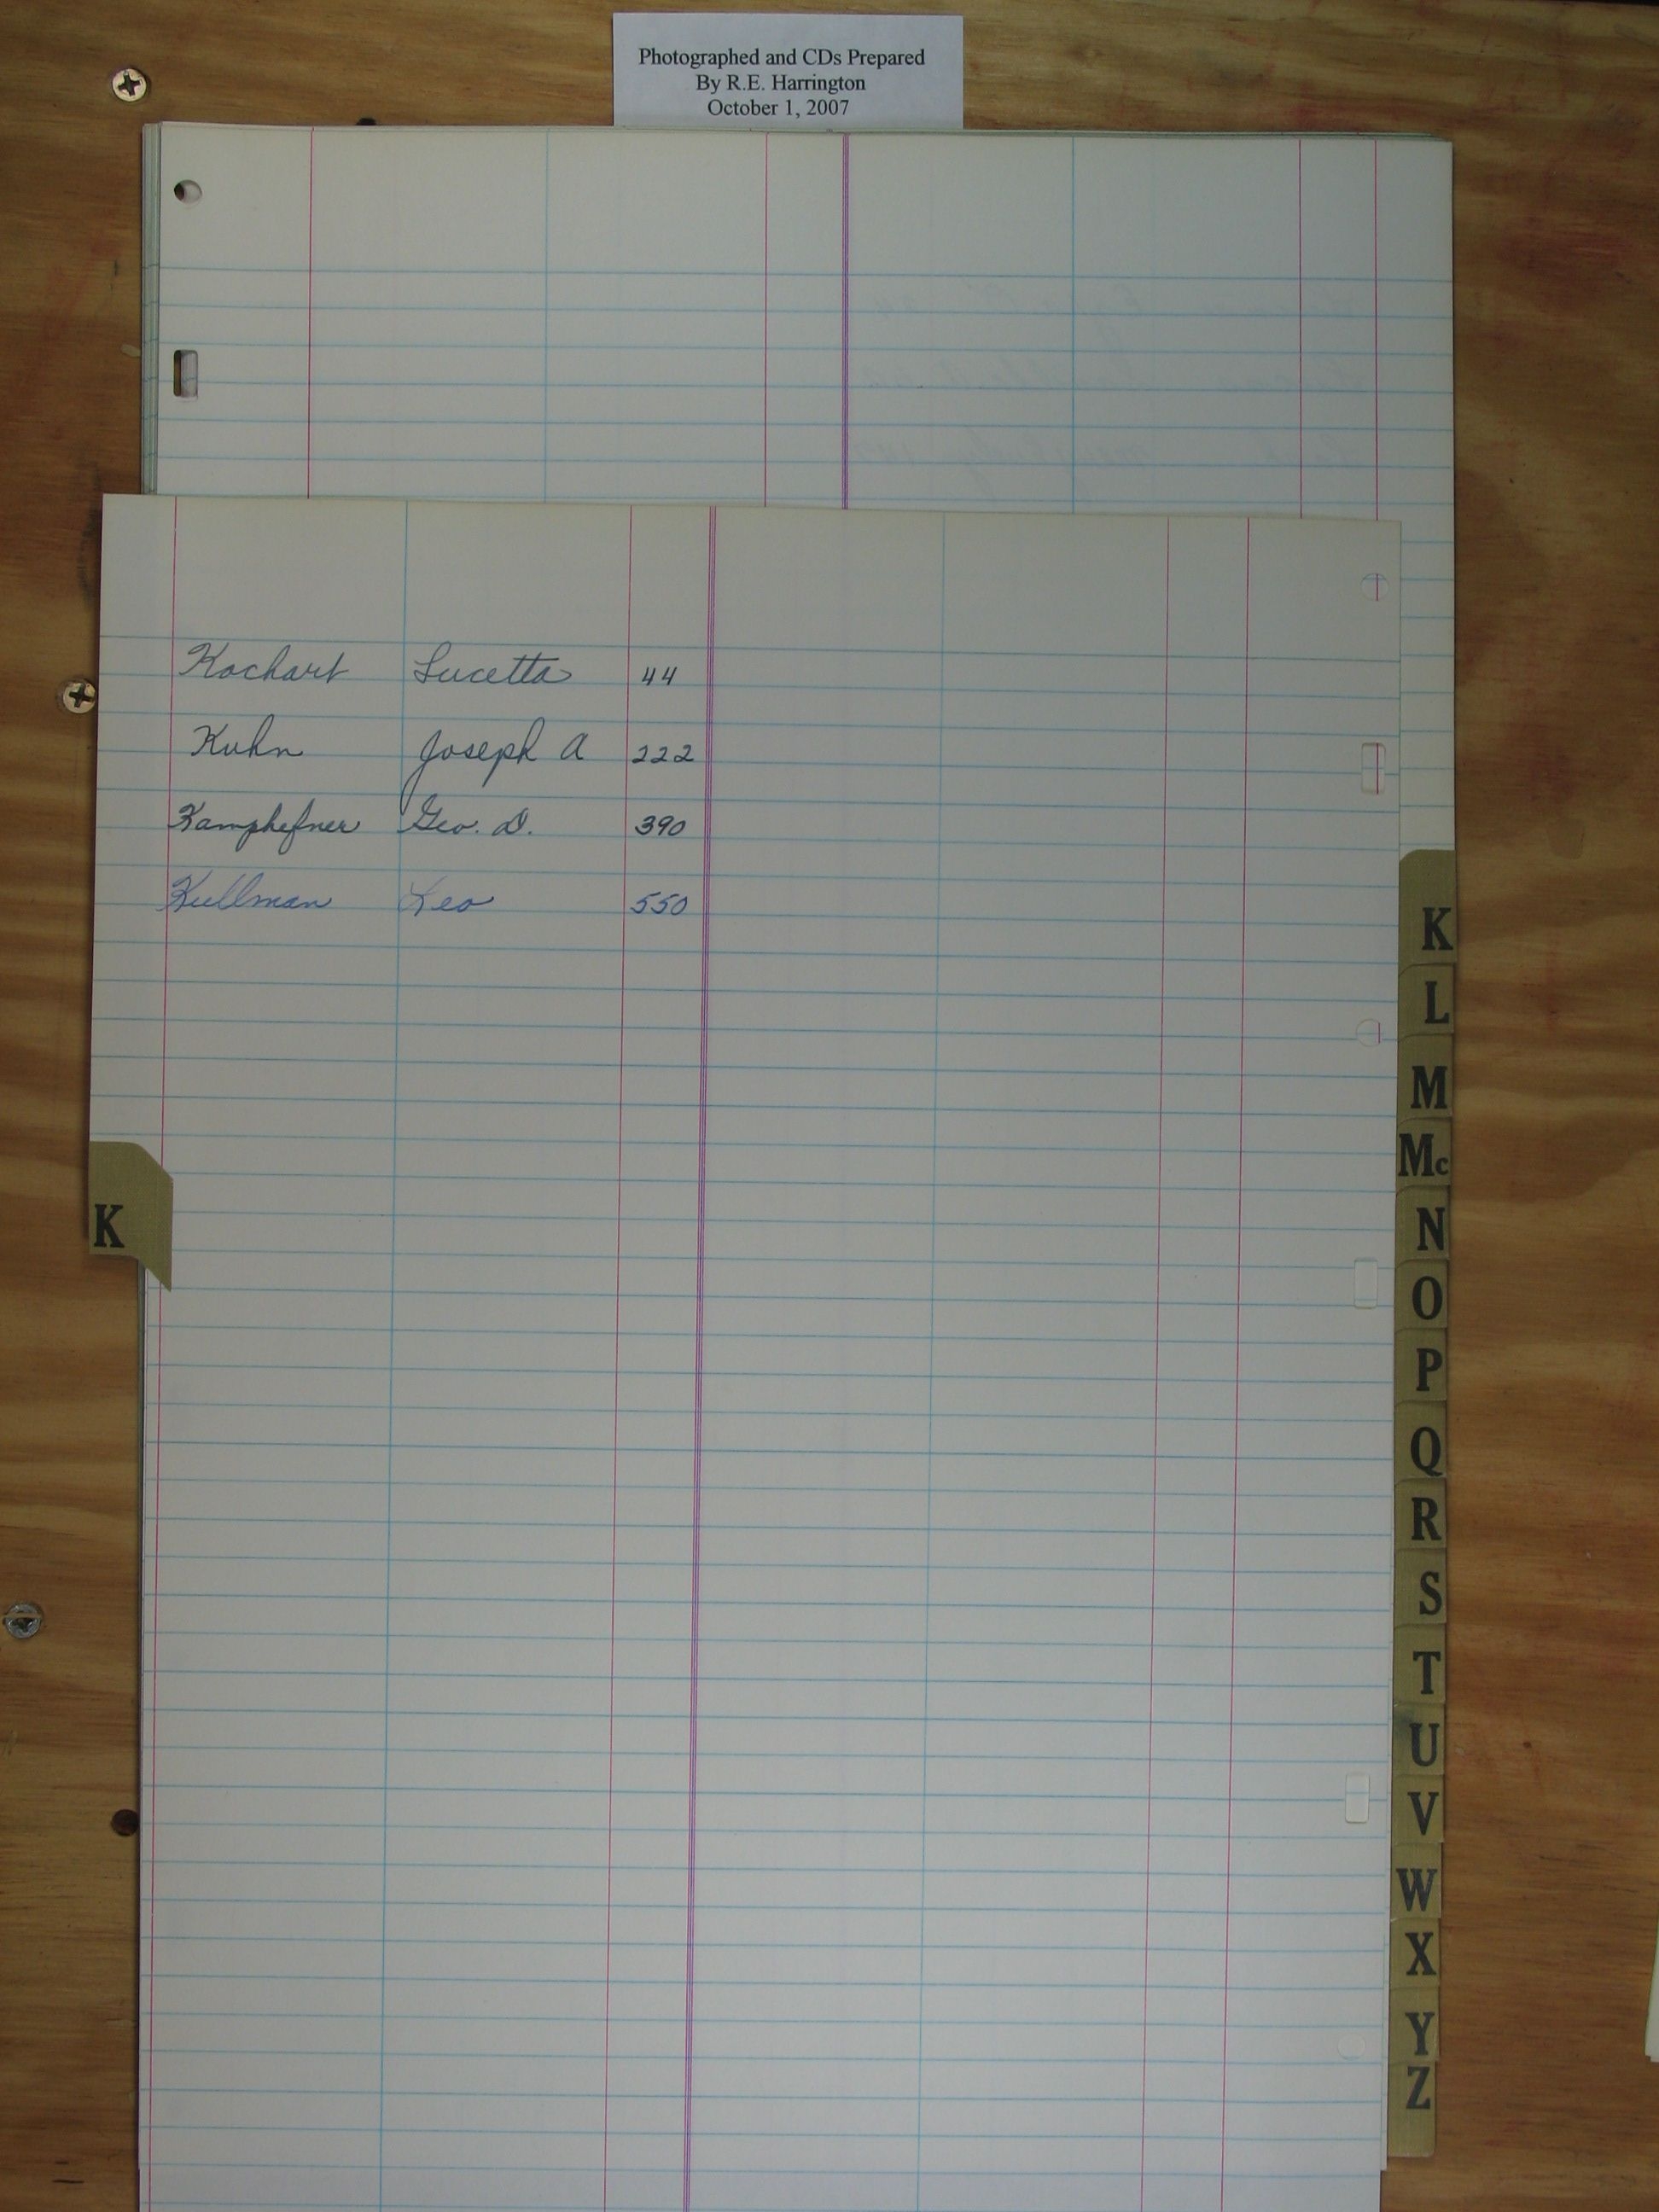 Photographed and CDs Prepared
By R.E. Harrington
October 1, 2007
Kochart Lucetta 44
Kuhn Joseph A 222
Kamphefner Geo. D. 390
Kullman Leo 550
K
K
L
M
Mc
N
O
P
Q
R
S
T
U
V
W
X
Y
Z